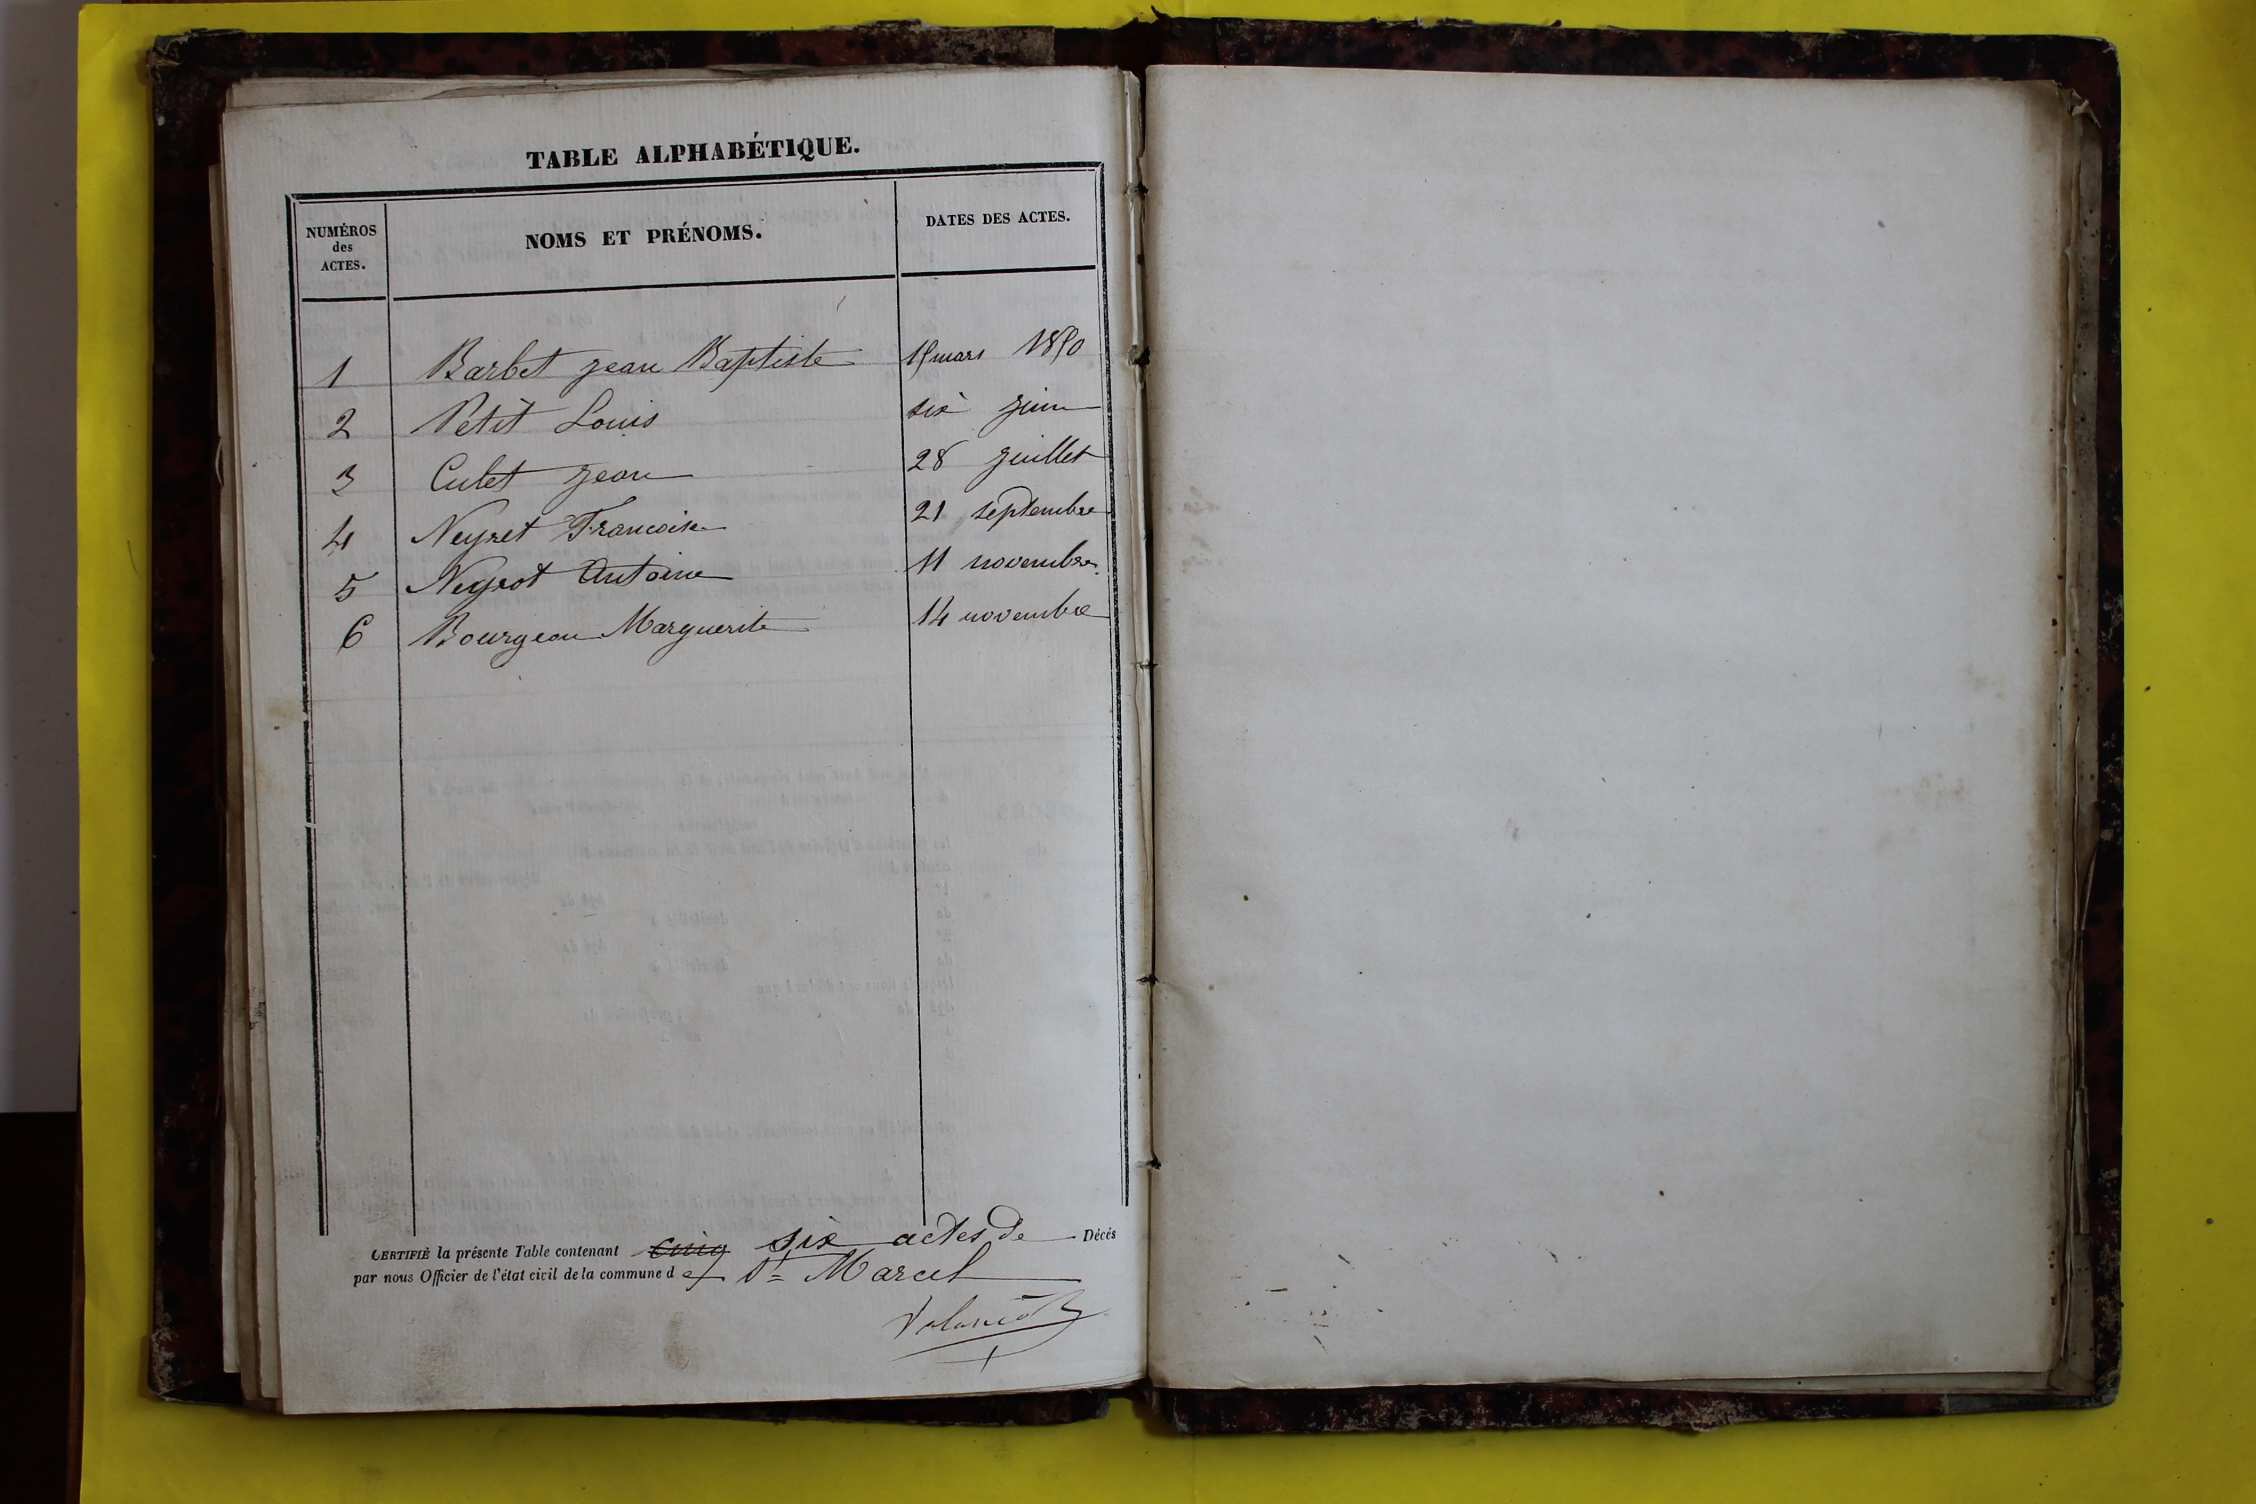 TABLE ALPHABÉTIQUE.
NUMÉROS
des
ACTES.
NOMS ET PRÉNOMS.
DATES DES ACTES.
1 Barbet jean Baptiste 15 mars 1850
2 Petit Louis six juin
3 Culet jean 28 juillet
4 Neyret Francoise 21 septembre
5 Neyrot Antoine 11 novembre
6 Bourgeau Marguerite 14 novembre
CERTIFIÉ la présente Table contenant cinq six actes de Décés
par nous Officier de l'état civil de la commune de St Marcel